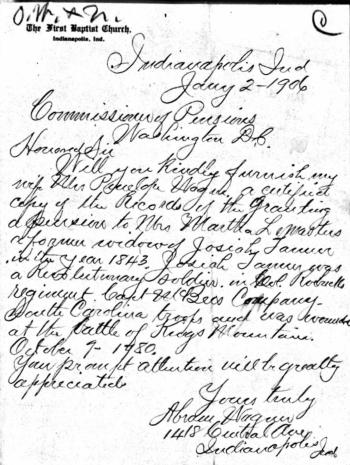 O. W. & N.
The First Baptist Church,
Indianapolis, Ind.
Indianapolis Ind
Jany 2-1906
Commissioner of Pensions
Washington D.C.
Honored Sir
Will you kindly furnish my
wife Mrs Penelope Wagner a certified
copy of the Records of the Granting
a pension to Mrs Martha Lemasters
a former widow of Josiah Tanner
in the year 1843. Josiah Tanner was
a Revolutionary soldier in Col Roebucks
regiment. Capt Company-
South Carolina troops and was wounded
at the battle of Kings Mountain.
October 7- 1780.
Your prompt attention will be greatly
appreciated
Yours truly
Abram Wagner
1418 Central Ave
Indianapolis Ind